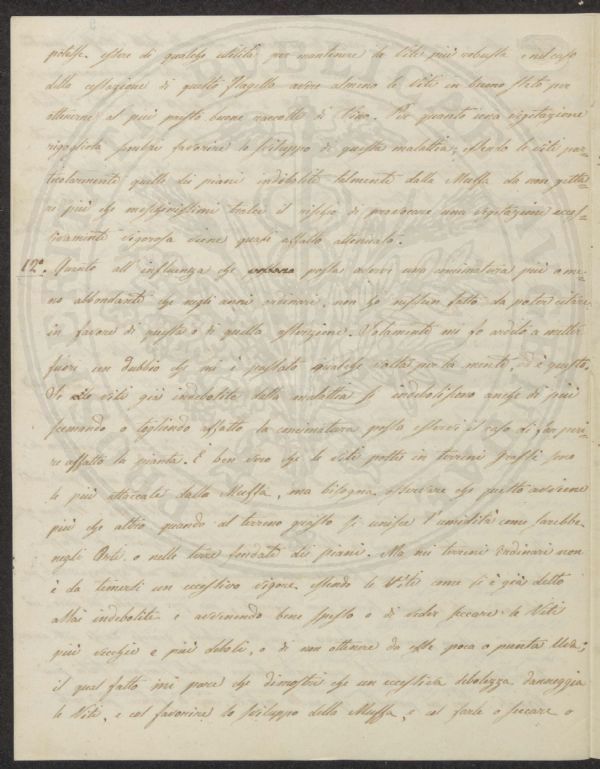 potesse essere di qualche utilità per mantenere le Viti più robuste e nel caso
della cessazione di questo flagello avere almeno le Viti in buono stato per
ottenerne al più presto buone raccolte di Vino. Per quanto una vegetazione
rigogliosa sembri favorire lo sviluppo di questa malattia, essendo le viti par-
ticolarmente quelle dei piani indebolite talmente dalla Muffa da non getta-
re più che meschinissimi tralci il rischio di provocare una vegetazione ecces-
sivamente vigorosa viene quasi affatto attenuato.
12°. Quanto all'influenza che possa avervi una concimatura più o me-
no abbondante che negli anni ordinari, non ho nessun fatto da poter citare
in favore di questa o di quella asserzione. Solamente mi fo ardito a metter
fuori un dubbio che mi è passato qualche volta per la mente, ed è questo.
Se le Viti già indebolite dalla malattia si indebolissero anche di più
scemando o togliendo affatto la concimatura possa esservi il caso di far peri-
re affatto la pianta. È ben vero che le Viti poste in terreni grassi sono
le più attaccate dalla Muffa, ma bisogna osservare che questo avviene
più che altro quando al terreno grasso si unisce l'umidità come sarebbe
negli Orti o nelle terre fondate dei piani. Ma nei terreni ordinari non
è da temersi un eccessivo vigore essendo le Viti come si è già detto
assai indebolite e avvenendo bene spesso o di veder seccare le Viti
più vecchie e più deboli, o di non ottenere da esse poca o punta Uva;
il qual fatto mi pare che dimostri che un eccessiva debolezza danneggia
le Viti, e col favorire lo sviluppo della Muffa, e col farle o seccare o